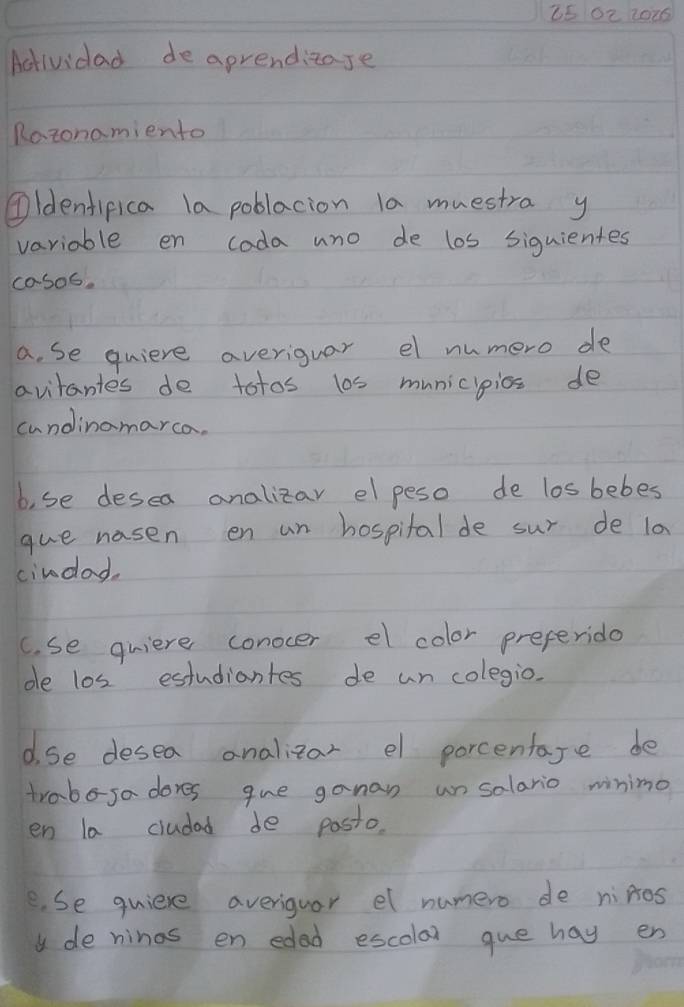 25 02 2026
Actividad de aprendizaje
Razonamiento
① Identifica la poblacion la muestra y
variable en cada uno de los siguientes
casos.
a. Se quiere averiguar el numero de
avitantes de totos los municipios de
cundinamarca.
b. se desea analizar el peso de los bebes
que nasen en un hospital de sur de la
ciudad.
c. se quiere conocer el color preferido
de los estudiantes de un colegio.
d. se desea analizar el porcentaje de
trabajadores que ganan un salario minimo
en la ciudad de pasto.
e. Se quiere averiguar el numero de niños
y de ninas en edad escolar que hay en